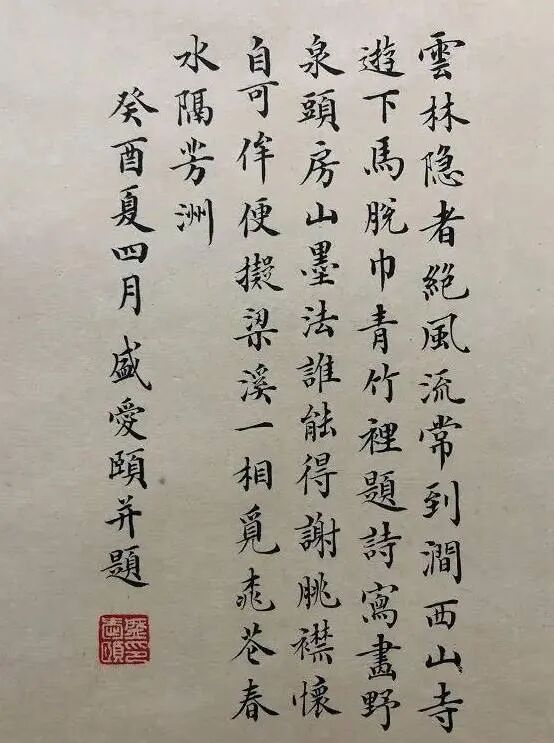 雲林隐者絕風流常到澗西山寺
遊下馬脫巾青竹裡題詩寫畫野
泉頭房山墨法誰能得謝眺襟懷
自可侔便擬梁溪一相覓桃花春
水隔芳洲
癸酉夏四月盛愛頤并題